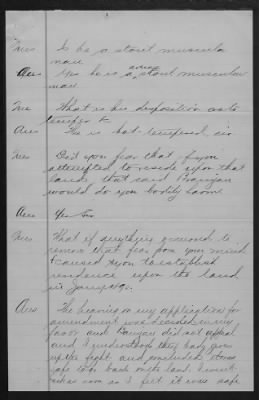 Ques Is he a stout muscular
man
Ans Yes he is a stout muscular
man
Ques What is his disposition as to
temper
Ans He is hot tempered, sir
Ques Did you fear that if you
attempted to reside upon that
land that said
would do you bodily harm
Ans Yes Sir
Ques What if anything occurred to
remove that fear from your mind
& caused you to establish
residence upon the land
in
Ans The hearing on my application for
amendment was decided in my
favor and did not appeal
and I understood they had given
up the fight and concluded it was
safe to go back on the land. I went
as soon as I felt it was safe